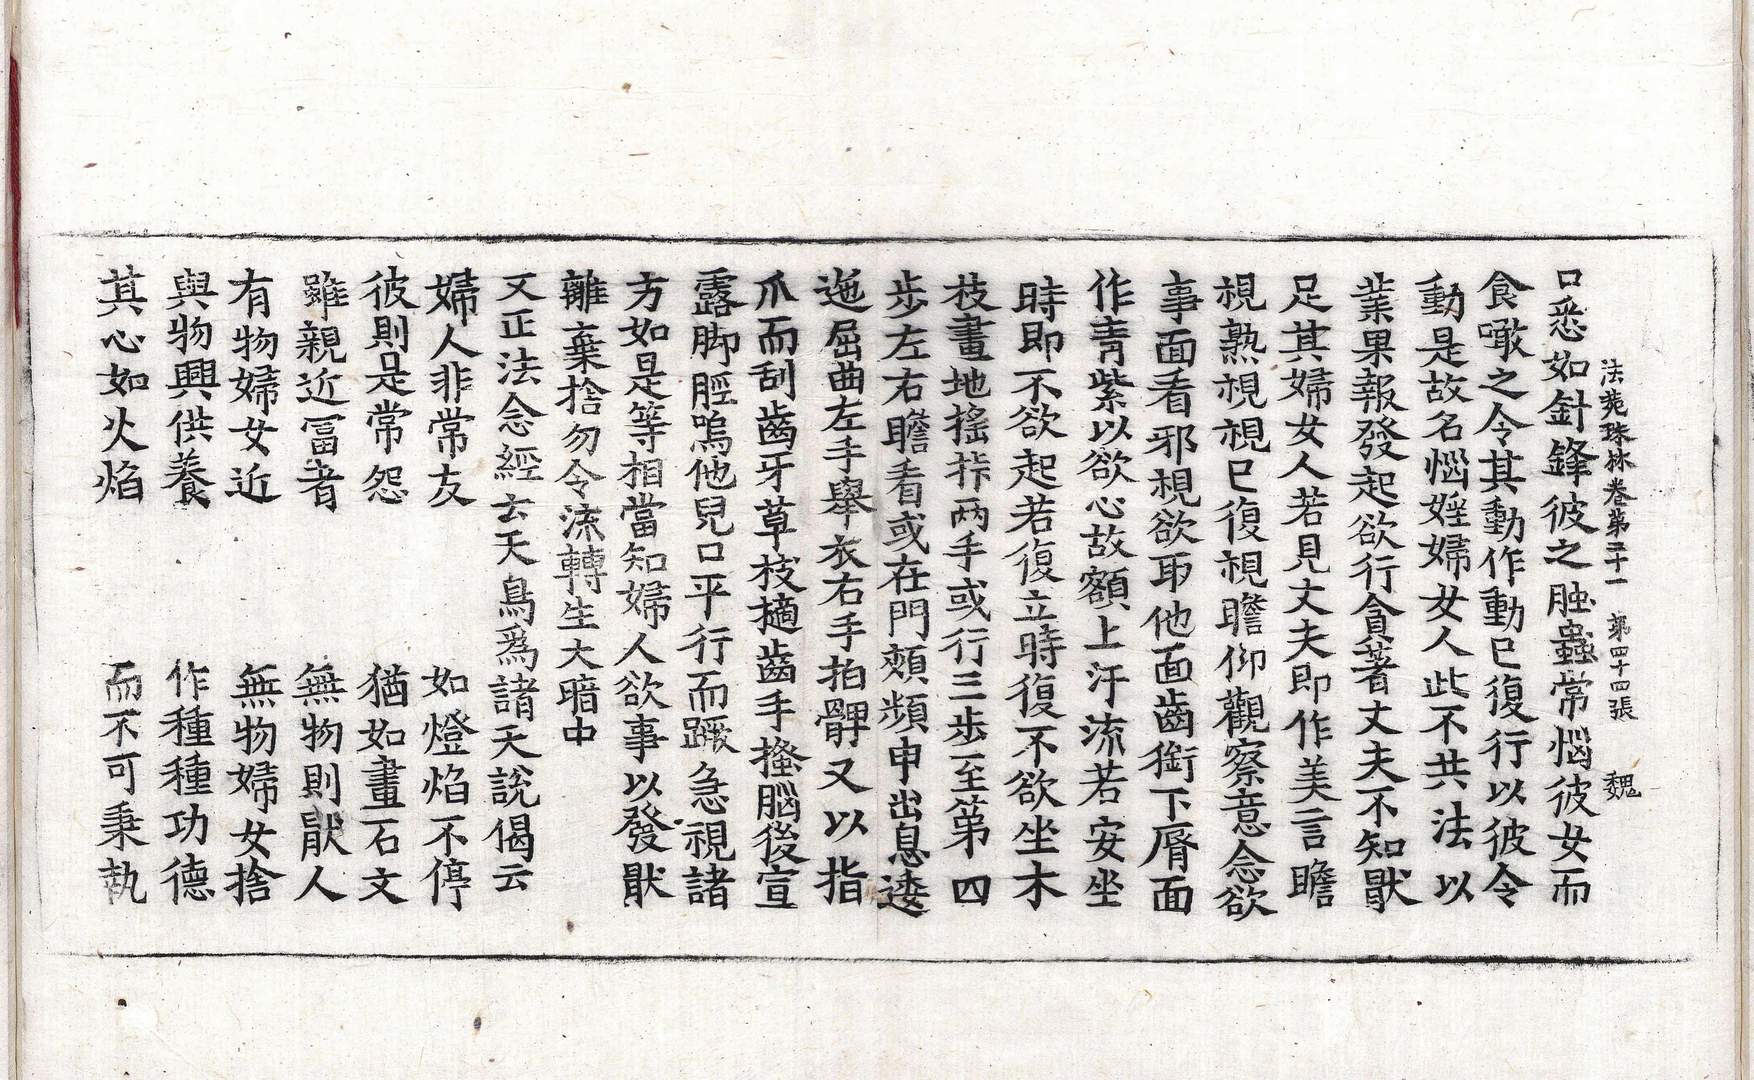 法苑珠林卷第二十一 第四十四張 魏
口悉如針鋒彼之䖝蟲常惱彼女而
食噉之令其動作動已復行以彼令
動是故名惱婬婦女人此不共法以
業果報發起欲行貪著丈夫不知猒
足其婦女人若見丈夫即作美言瞻
視熟視視已復視瞻仰觀察意念欲
事面看邪視欲取他面齒銜下脣面
作青紫以欲心故額上汗流若安坐
時即不欲起若復立時復不欲坐木
枝畫地搖𢫫兩手或行三步至第四
步左右瞻看或在門頰頻申出息逶
迤屈曲左手舉衣右手拍髀又以指
爪而刮齒牙草枝擿齒手搔腦後宣
露脚脛嗚他兒口平行而蹶急視諸
方如是等相當知婦人欲事以發猒
離棄捨勿令流轉生大暗中
又正法念經云天鳥爲諸天說偈云
婦人非常友 如燈焰不停
彼則是常怨 猶如畫石文
雖親近冨者 無物則猒人
有物婦女近 無物婦女捨
與物興供養 作種種功德
其心如火焰 而不可秉執